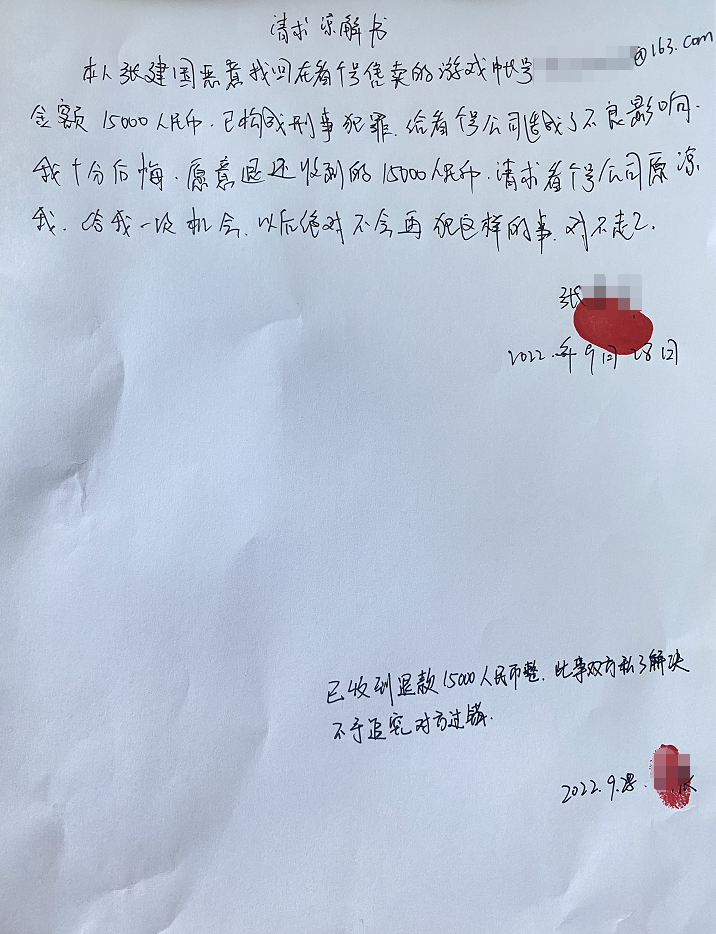 请求谅解书
本人张建国恶意找回在看个号售卖的游戏帐号 @163.com
金额15000人民币.已构成刑事犯罪.给看个号公司造成了不良影响.
我十分后悔.愿意退还收到的15000人民币.请求看个号公司原凉
我.给我一次机会.以后绝对不会再犯这样的事.对不起2.
张
2022.年9月28日
已收到退款15000人民币整.此事双方私了解决
不予追究对方过错.
2022.9.28.